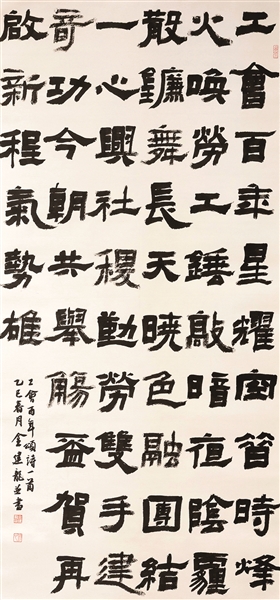 工會百年星耀穹昔時烽
火喚勞工錘敲暗夜陰霾
散鐮舞長天曉色融團結
一心興社稷勤勞雙手建
奇功今朝共舉觴盃賀再
啟新程氣勢雄
工會百年頌詩一首
乙巳春月金建龍並書